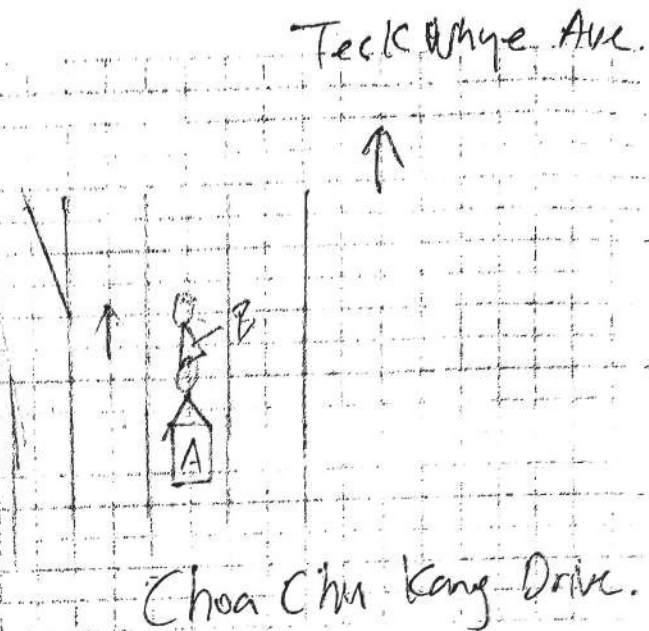 Teck Whye Ave.
B
A
Choa Chu Kang Drive.